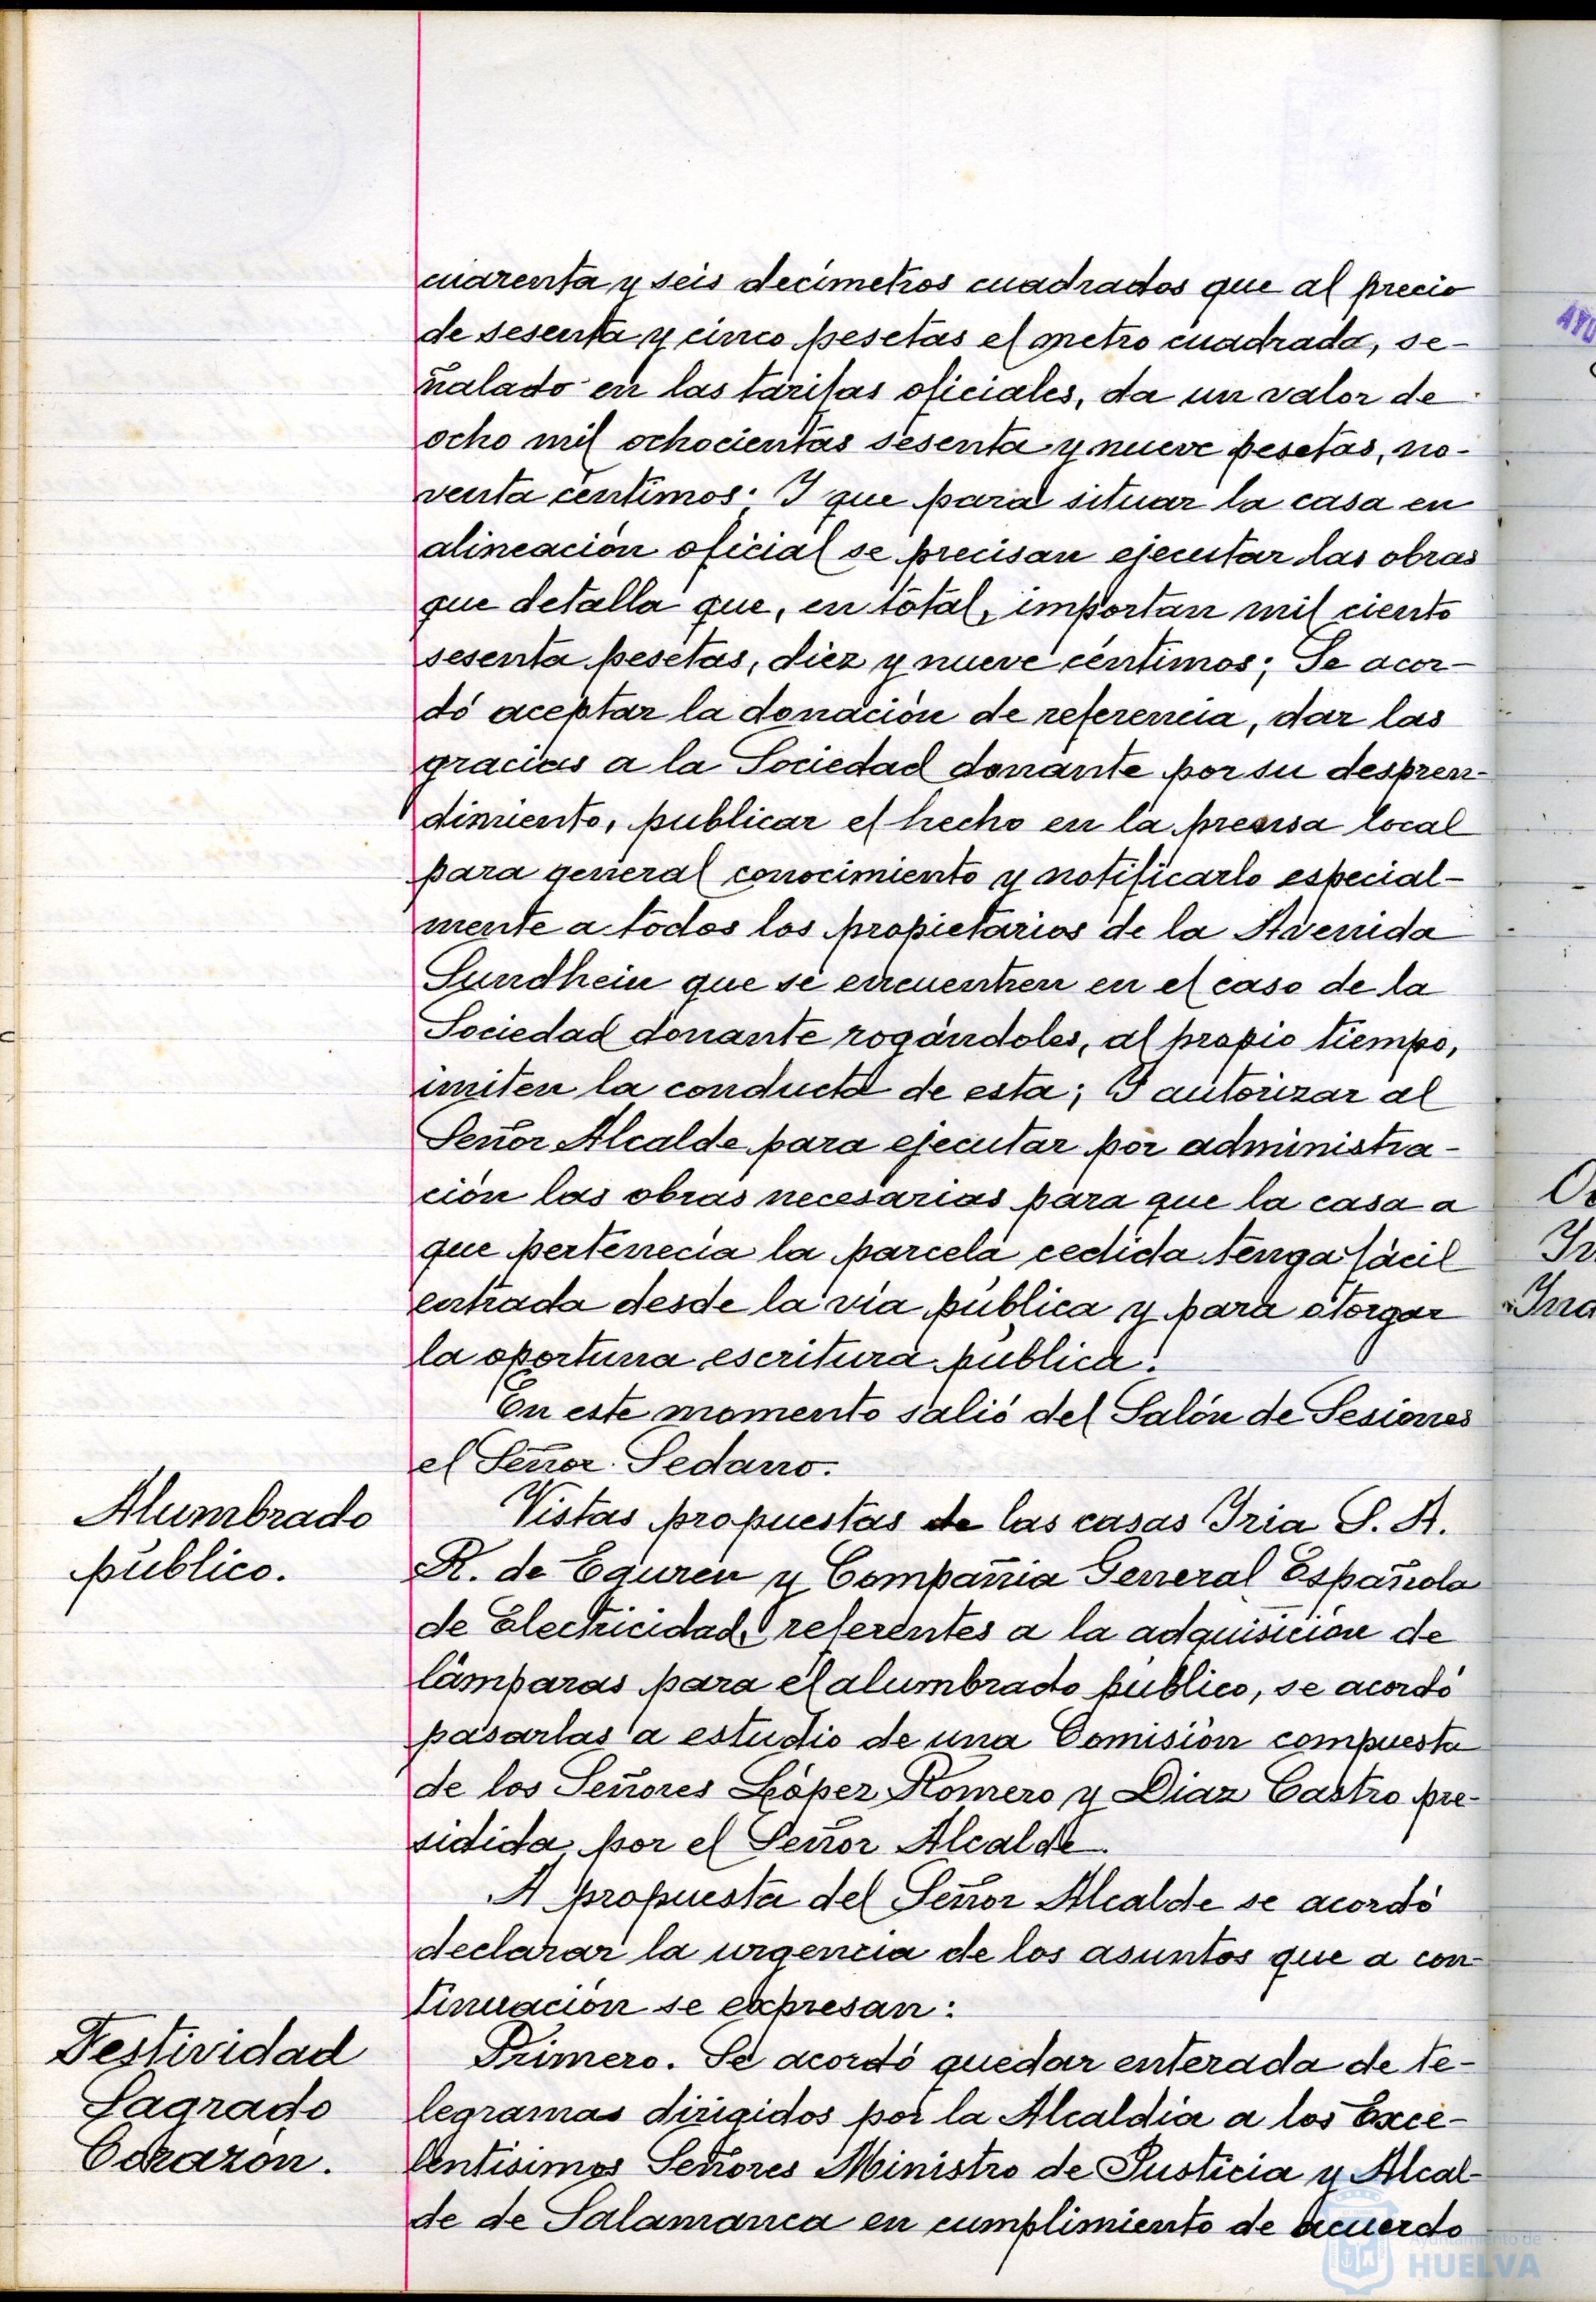 cuarenta y seis decímetros cuadrados que al precio
de sesenta y cinco pesetas el metro cuadrado, se-
ñalado en las tarifas oficiales, da un valor de
ocho mil ochocientas sesenta y nueve pesetas, no-
venta centimos; Y que para situar la casa en
alineación oficial se precisan ejecutar las obras
que detalla que, en total, importan mil ciento
sesenta pesetas, diez y nueve céntimos; Se acor-
dó aceptar la donación de referencia, dar las
gracias a la Sociedad donante por su despren-
dimiento, publicar el hecho en la prensa local
para general conocimiento y notificarlo especial-
mente a todos los propietarios de la Avenida
Sundhein que se encuentren en el caso de la
Sociedad donante rogándoles, al propio tiempo,
imiten la conducta de esta; Y autorizar al
Señor Alcalde para ejecutar por administra-
ción las obras necesarias para que la casa a
que pertenecía la parcela cedida tenga fácil
entrada desde la vía pública y para otorgar
la oportuna escritura pública.
En este momento salió del Salón de Sesiones
el Señor Sedano.
Alumbrado
público.
Vistas propuestas de las casas Iria S. A.
R. de Eguren y Compañia General Española
de Electricidad, referentes a la adquisición de
lámparas para el alumbrado público, se acordó
pasarlas a estudio de una Comisión compuesta
de los Señores López Romero y Diaz Castro pre-
sidida por el Señor Alcalde.
A propuesta del Señor Alcalde se acordó
declarar la urgencia de los asuntos que a con-
tinuación se expresan:
Festividad
Sagrado
Corazón.
Primero. Se acordó quedar enterada de te-
legramas dirigidos por la Alcaldia a los Exce-
lentisimos Señores Ministro de Justicia y Alcal-
de de Salamanca en cumplimiento de acuerdo
Ayuntamiento de
HUELVA